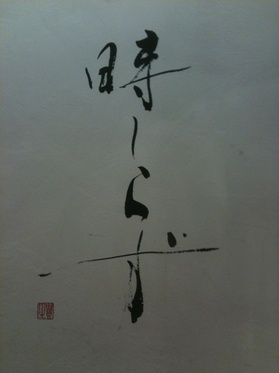 時しらず